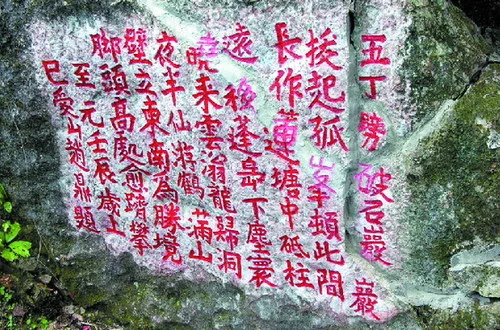 五丁劈破石巖巖
拔起孤峯頓此間
長作蓮塘中砥柱
遠移蓬島下塵寰
曉来雲滃龍歸洞
夜半仙遊鶴滿山
壁立東南為勝境
脚頭高處愈躋攀
至元壬辰歲上
巳愛山趙鼎題